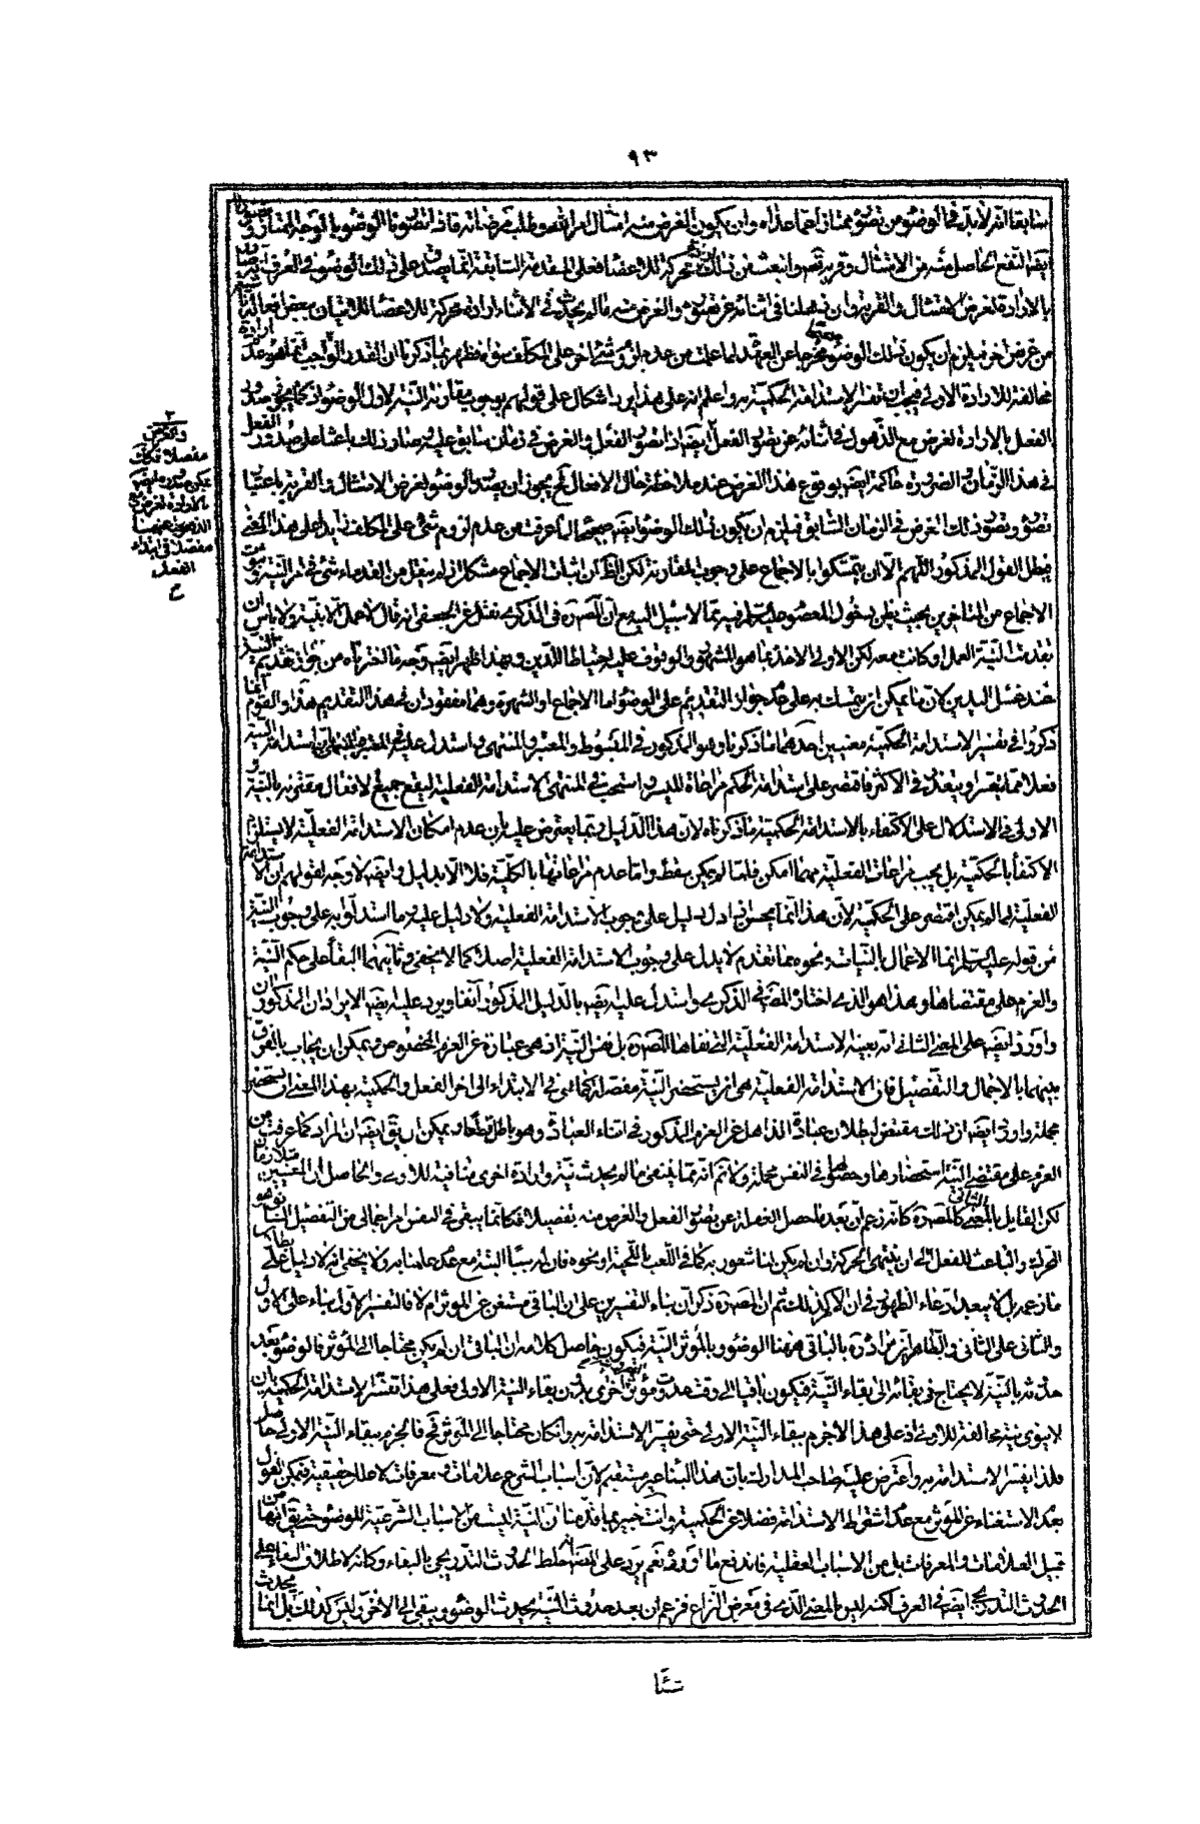 ٩٣
سابقا انه لا بد في الوضوء من تصوره ممتازا عما عداه وان يكون الغرض منه امتثال امر الله وطلب مرضاته فاذا تصورنا الوضوء بالوجه الممتاز
ايضا النفع الحاصل منه من الامتثال والقربة وانبعث من ذلك تحريك للاعضاء فعلى المقدمة السابقة انما يصدق على ذلك الوضوء في العرف انه
بالارادة لغرض الامتثال والقربة وان ذهلنا في اثنائه عن تصوره والغرض منه ما لم يحدث في الاثناء ارادة محركة للاعضاء للاتيان ببعض افعاله
من غرض اخر فيلزم ان يكون ذلك الوضوء مخرجا عن العهدة لما علمت من عدم لزوم شئ اخر على المكلف سواه فظهر بما ذكرنا ان القدر الواجب انما هو عدم
مخالفته للارادة الاولى فيجب ان تفسر الاستدامة الحكمية به واعلم انه على هذا يرد اشكال على قولهم بوجوب مقارنة النية لاول الوضوء اذ كما يجوز صدور
الفعل بالارادة لغرض مع الذهول في اثنائه عن تصور الفعل ايضا اذا تصور الفعل والغرض في زمان سابق عليه وصار ذلك باعثا على صدور الفعل
في هذا الزمان والضرورة حاكمة ايضا بوقوع هذا الغرض عند ملاحظة حال الافعال فلم يجوز ان يصدر الوضوء لغرض الامتثال والقربة باعتبار
تصوره وتصور ذلك الغرض في الزمان السابق فيلزم ان يكون ذلك الوضوء ايضا صحيحا لما عرفت من عدم لزوم شئ على المكلف زايدا على هذا المعنى
فبطل القول المذكور اللهم الا ان يتمسكوا بالاجماع على وجوب المقارنة لكن الظاهر ان اثبات الاجماع مشكل اذ لم ينقل من القدماء شئ في امر النية وثبوت
الاجماع من المتاخرين بحيث يظن بدخول المعصوم عليه السلم فيه مما لا سبيل اليه مع ان المصره في الذكرى نقل عن الجعفي انه قال لا عمل الا بنية ولا باس ان
تقدمت النية العمل او كانت معه لكن الاولى الاخذ بما هو المشهور والوقوف عليه لاحتياط الدين وبهذا ظهر ايضا وجه ما اخترناه من جواز تقديم النية
عند غسل اليدين لان ما يمكن ان يتمسك به على عدم جواز التقديم على الوضوء اما الاجماع او الشهرة وهما مفقودان في هذا التقديم هذا والقوم
ذكروا في تفسير الاستدامة الحكمية معنيين احدهما ما ذكرنا وهو المذكور في المبسوط والمعتبر والمنتهى واستدل عليه في المعتبر والمنتهى بان استدامة النية
فعلا مما يعسر ويتعذر في الاكثر فاقتصر على استدامة الحكم مراعاة لليسر واستحب في المنتهى الاستدامة الفعلية ليقع جميع الافعال مقترنة بالنية و
الاولى في الاستدلال على الاكتفاء بالاستدامة الحكمية ما ذكرناه لان هذا الدليل ربما يعترض عليه بان عدم امكان الاستدامة الفعلية لا يستلزم
الاكتفاء بالحكمية بل يجب مراعات الفعلية مهما امكن فلما لم يمكن سقط واما عدم مراعاتها بالكلية فلا الا بدليل وايضا لا وجه لقولهم ان الاستدامة
الفعلية لما لم يمكن اقتصر على الحكمية لان هذا انما يحسن اذا دل دليل على وجوب الاستدامة الفعلية ولا دليل عليه وما استدلوا به على وجوب النية
من قوله عليه السلم انما الاعمال بالنيات ونحوه مما تقدم لا يدل على وجوب الاستدامة الفعلية اصلا كما لا يخفى وثانيهما البقاء على حكم النية
والعزم على مقتضاها وهذا هو الذي اختاره المصره في الذكرى واستدل عليه ايضا بالدليل المذكور آنفا ويرد عليه ايضا الايرادان المذكوران
واورد ايضا على المعنى الثاني انه بعينه الاستدامة الفعلية التي نفاها المصره بل نفس النية اذ هي عبارة عن العزم المخصوص ويمكن ان يجاب بالفرق
بينهما بالاجمال والتفصيل فان الاستدامة الفعلية هي ان يستحضر النية مفصلة كما هي في الابتداء الى اخر الفعل والحكمية بهذا المعنى ان يستحضر
مجملة واورد ايضا ان ذلك مقتض لبطلان عبادة الذاهل عن العزم المذكور في اثناء العبادة وهو باطل قطعا ويمكن ان يق ايضا ان المراد كما عرفت من
العزم على مقتضى النية استحضارها وحصولها في النفس مجملة ولا نم انه مما ينتفي ما لم يحدث نية وارادة اخرى منافية للاولى والحاصل ان المعنيين متلازمان
لكن القايل بالمعنى الثاني كالمصره كانه زعم ان بعد ما حصل الغفلة عن تصور الفعل والغرض منه تفصيلا فكانما يبقى في النفس امر اجمالي من التفصيل السابق هو
المحرك والباعث للفعل الى ان ينتهي الحركة وان لم يكن لنا شعور به كما في اللعب باللحية ونحوه فان له سببا البتة مع عدم علمنا به ولا يخفى انه لا دليل على بطلان
ما زعمه بل لا يبعد ادعاء الظهور في ان الامر كذلك ثم ان المصره ذكر ان بناء التفسيرين على ان الباقي مستغن عن المؤثر ام لا فالتفسير الاول بناء على الاول
والثاني على الثاني والظاهر ان مراده بالباقي هيهنا الوضوء وبالمؤثر النية فيكون حاصل كلامه ان الباقي ان لم يكن محتاجا الى المؤثر فالوضوء بعد
حدوثه بالنية لا يحتاج في بقائه الى بقاء النية فيكون باقيا الى وقت حدوث مؤثر اخرى بدون بقاء النية الاولى فعلى هذا تفسر الاستدامة الحكمية بان
لا ينوي نية مخالفة للاولى اذ على هذا لا جزم ببقاء النية الاولى حتى يفسر الاستدامة به وان كان محتاجا الى المؤثر فح فالجزم ببقاء النية الاولى حاصل
فلذا يفسر الاستدامة به واعترض عليه صاحب المدارك بان هذا البناء غير مستقيم لان اسباب الشرع علامات ومعرفات لا علل حقيقية فيمكن القول
بعدم الاستغناء عن المؤثر مع عدم اشتراط الاستدامة فضلا عن الحكمية وانت خبير بما قدمنا ان النية ليست من الاسباب الشرعية للوضوء حتى يق انها من
قبيل العلامات والمعرفات بل من الاسباب العقلية فاندفع ما اورده نعم يرد على المصره انه خلط الحدوث التدريجي بالبقاء وكانه لاطلاق البقاء على
الحدوث التدريجي ايضا في العرف لكنه ليس بالمعنى الذي في معرض النزاع فزعم ان بعد حدوث النية يحدث الوضوء ويبقى الى الاخر وليس كذلك بل انما يحدث
والغرض
مفصلا فكك
يمكن صدوره ايضا
بالارادة لغرض مع
الذهول عنهما
مفصلا في ابتداء
الفعل